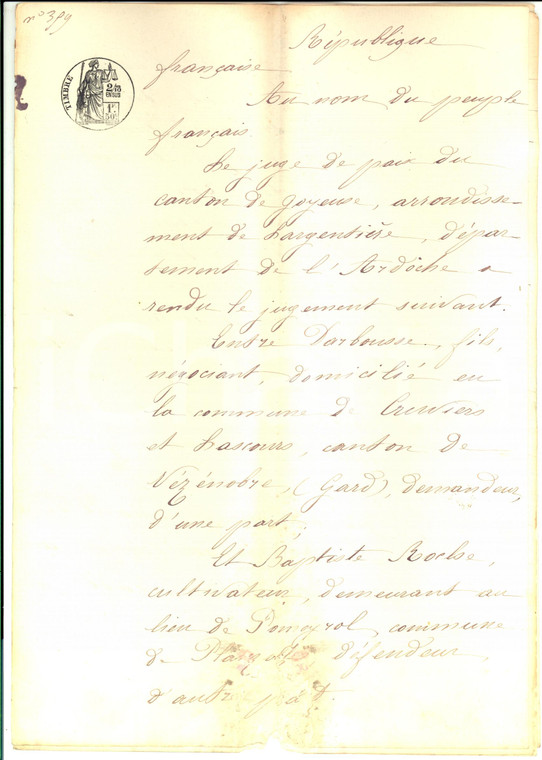 n° 399
TIMBRE
2/10
EN SUS
1F
50C
République
française
Au nom du peuple
français.
Le juge de paix du
canton de Joyeuse, arrondisse-
ment de Largentière, dépar-
tement de l'Ardèche a
rendu le jugement suivant.
Entre Darbousse, fils,
négociant, domicilié en
la commune de Cruviers
et Lascours, canton de
Vézénobre, (Gard), demandeur,
d'une part;
Et Baptiste Roche,
cultivateur, demeurant au
lieu de Pomeyrol, commune
de défendeur,
d'autre part.